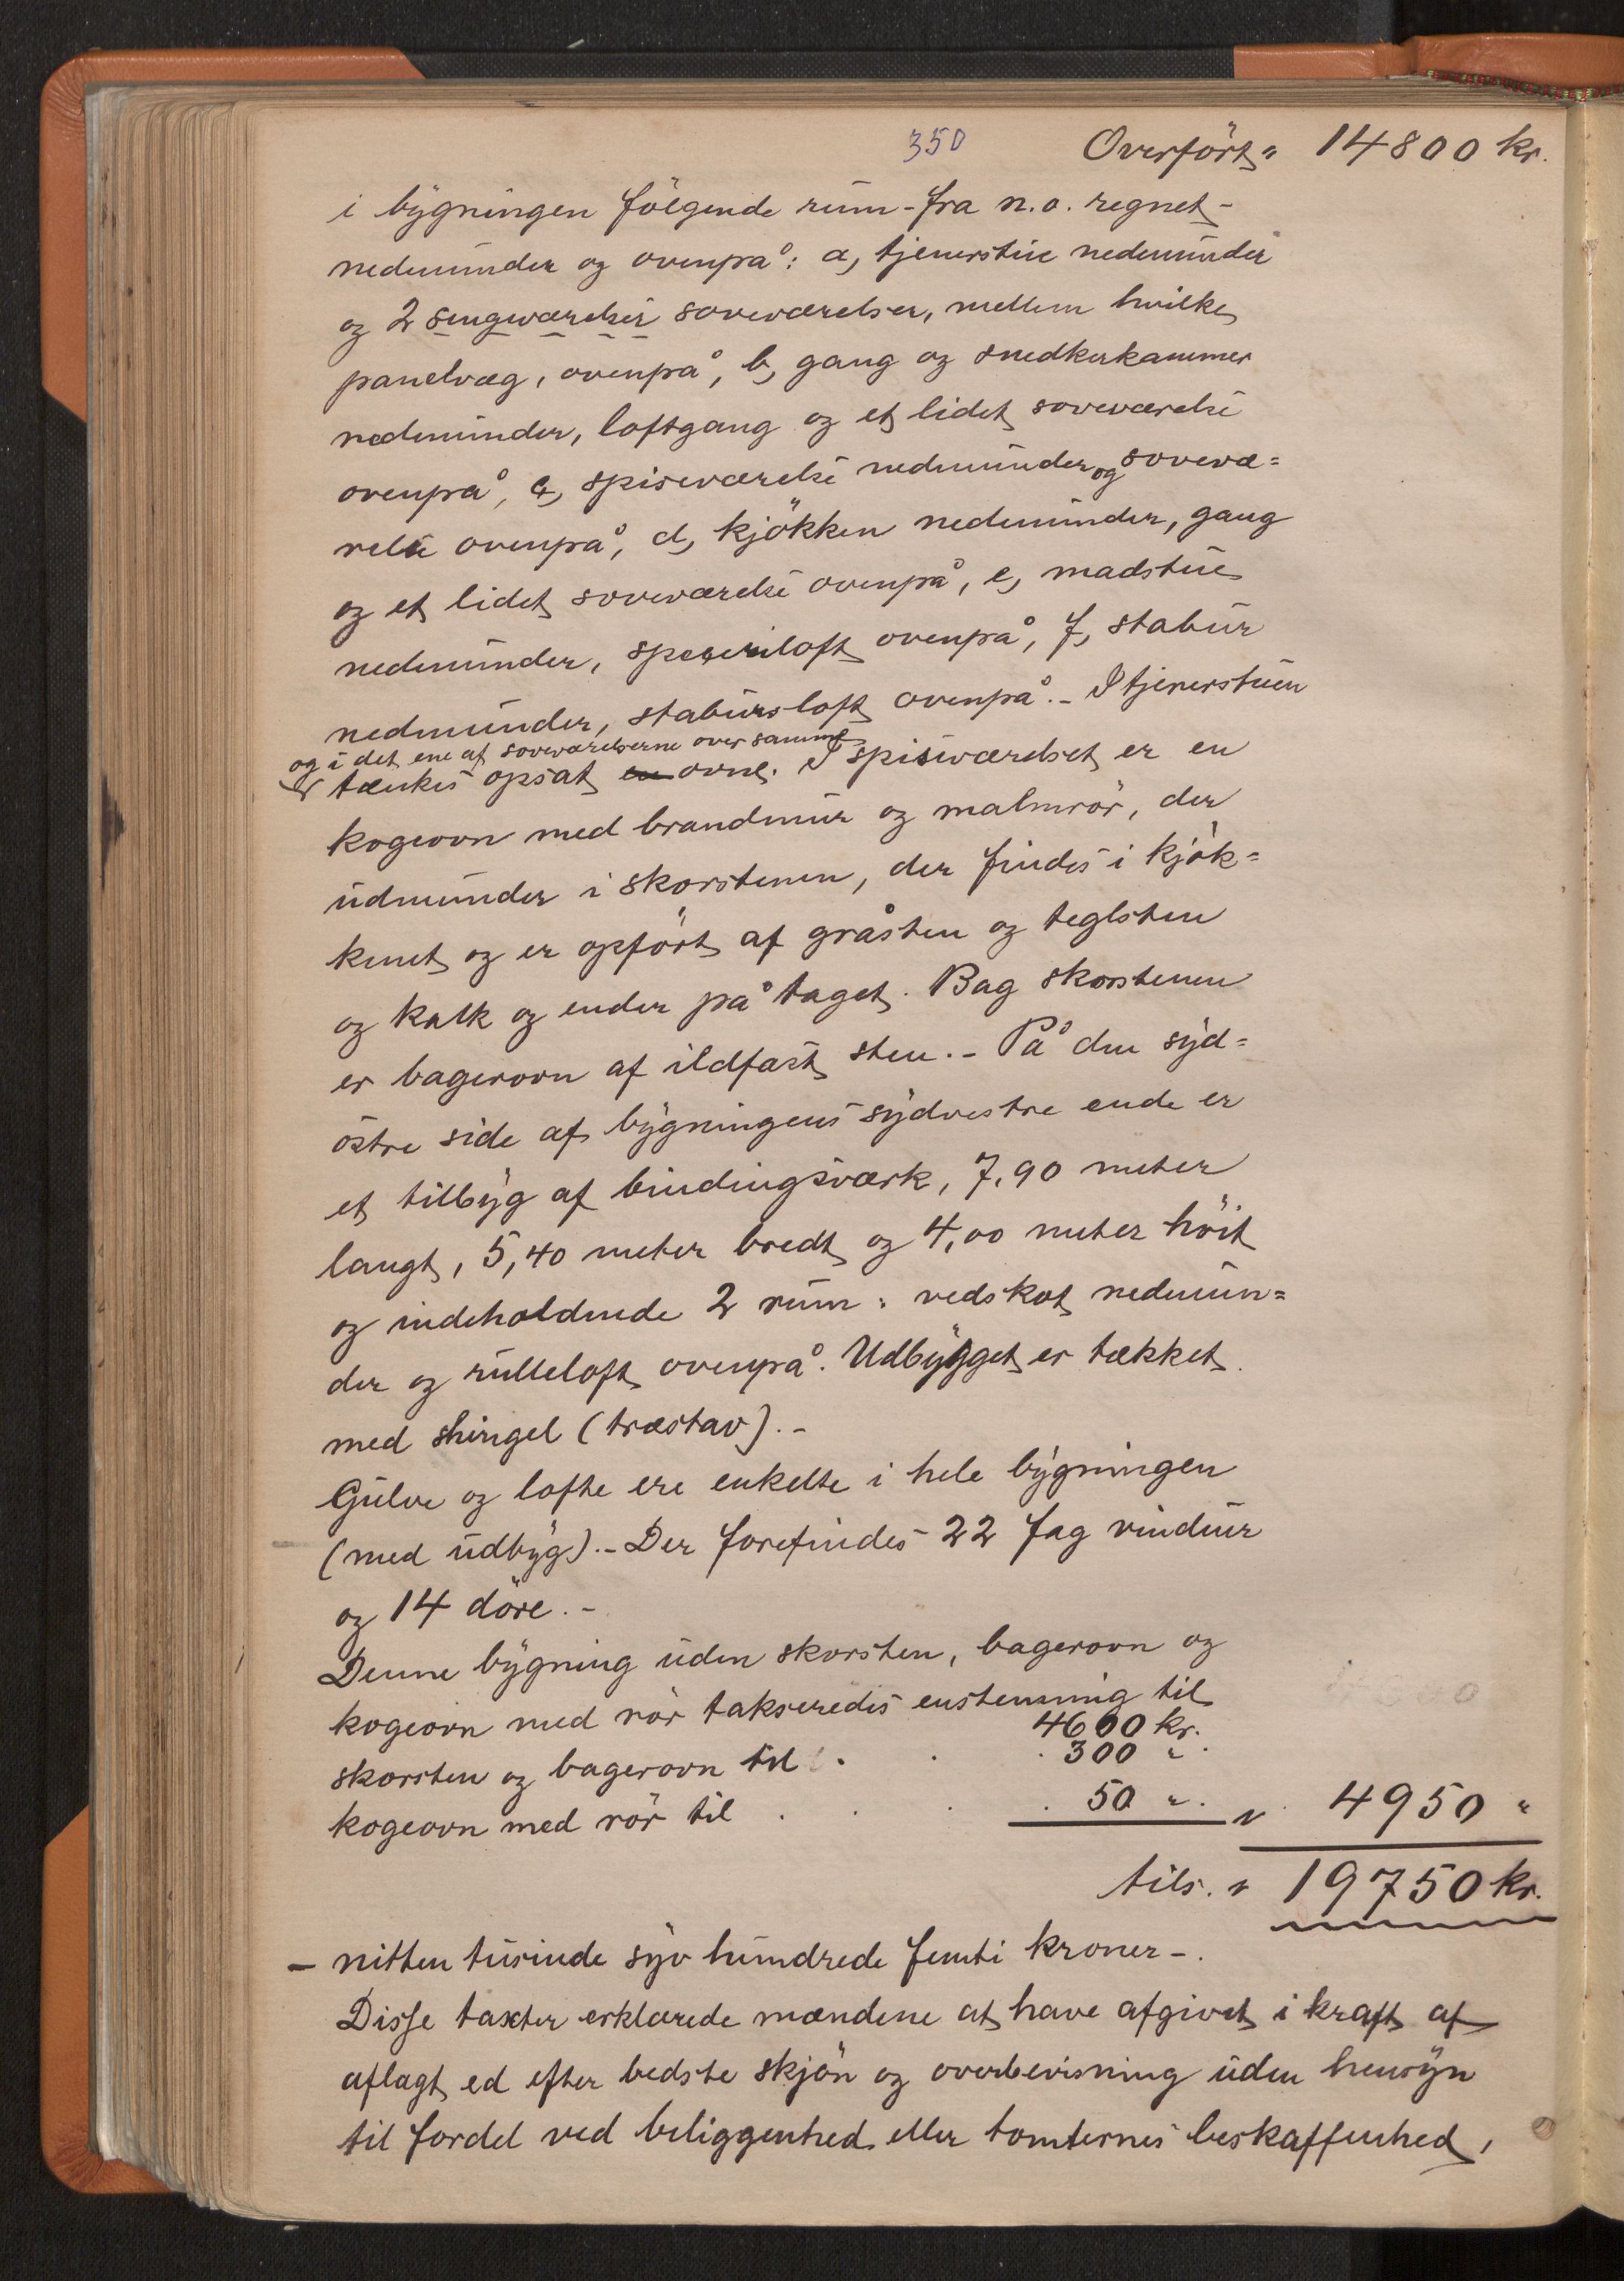 350
Overført " 14800 kr.
i bygningen følgende rum - fra n.o. regnet -
nedenunder og ovenpå: a, tjenerstue nedenunder
og 2 sengeværelser soveværelser, mellem hvilke
panelvæg, ovenpå, b, gang og snedkerkammer
nedenunder, loftgang og et lidet soveværelse
ovenpå, c, spiseværelse nedenunder og sovevæ=
relse ovenpå, d, kjøkken nedenunder, gang
og et lidet soveværelse ovenpå, e, madstue
nedenunder, speseriloft ovenpå, f, stabur
nedenunder, stabursloft ovenpå. - I tjenerstuen
og i det ene af soveværelserne over samme
tænkes opsat en ovne. I spiseværelset er en
kogeovn med brandmur og malmrør, der
udmunder i skorstenen, der findes i kjøk=
kenet og er opført af gråsten og teglsten
og kalk og ender på taget. Bag skorstenen
er bagerovn af ildfast sten. - På den syd=
østre side af bygningens sydvestre ende er
et tilbyg af bindingsværk, 7,90 meter
langt, 5,40 meter bredt og 4,00 meter høit
og indeholdende 2 rum: vedskot nedenun=
der og rulleloft ovenpå. Udbygget er tækket
med shingel (træstav). -
Gulve og lofte ere enkelte i hele bygningen
(med udbyg). - Der forefindes 22 fag vinduer
og 14 døre. -
Denne bygning uden skorsten, bagerovn og
kogeovn med rør takseredes enstemmig til
4600 kr.
skorsten og bagerovn til . . . 300 " .
kogeovn med rør til . . . . 50 " . " 4950 "
tils. " 19750 kr.
- nitten tusinde syv hundrede femti kroner -.
Disse taxter erklærede mændene at have afgivet i kraft af
aflagt ed efter bedste skjøn og overbevisning uden hensyn
til fordel ved beliggenhed eller tomternes beskaffenhed,